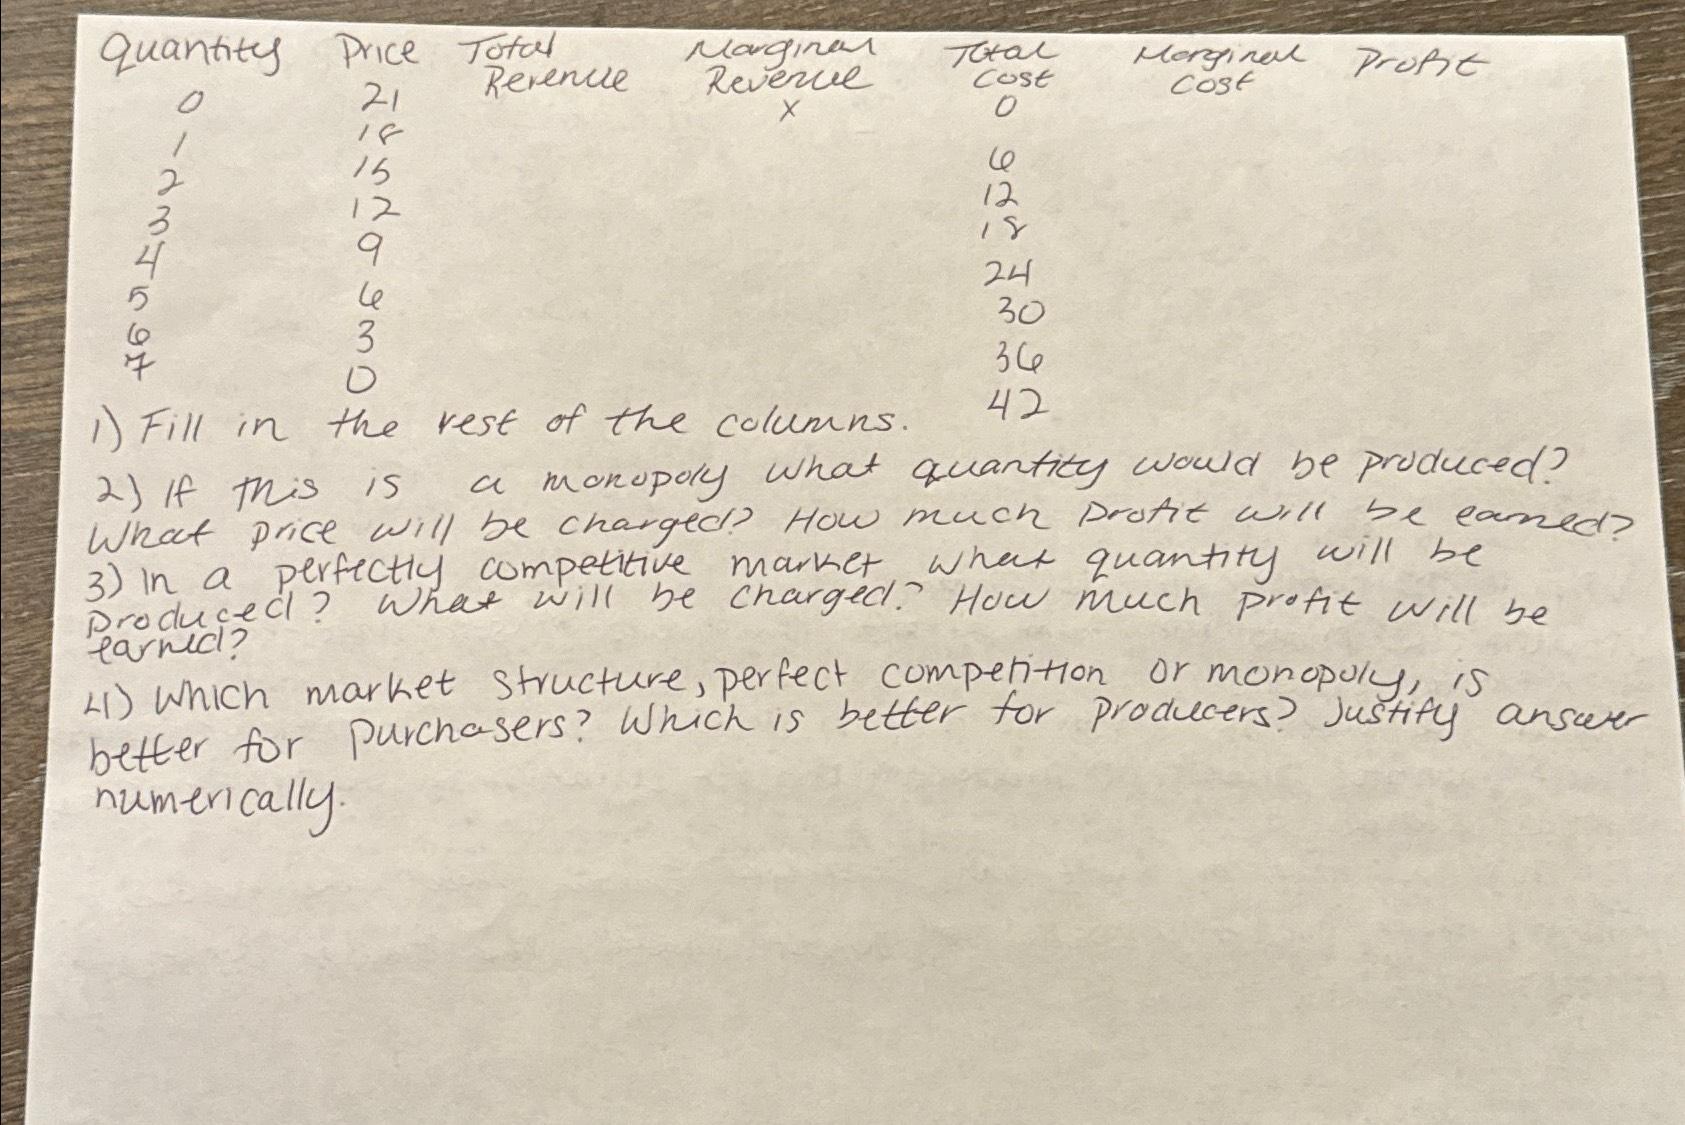 Quantity Price Total Revenue Marginal Revenue Total Cost Marginal Cost Profit
0 21 x 0
1 18 6
2 15 12
3 12 18
4 9 24
5 6 30
6 3 36
7 0 42
1) Fill in the rest of the columns.
2) If this is a monopoly what quantity would be produced?
What price will be charged? How much profit will be earned?
3) In a perfectly competitive market what quantity will be
produced? What will be charged? How much profit will be
earned?
4) Which market structure, perfect competition or monopoly, is
better for purchasers? Which is better for producers? Justify answer
numerically.